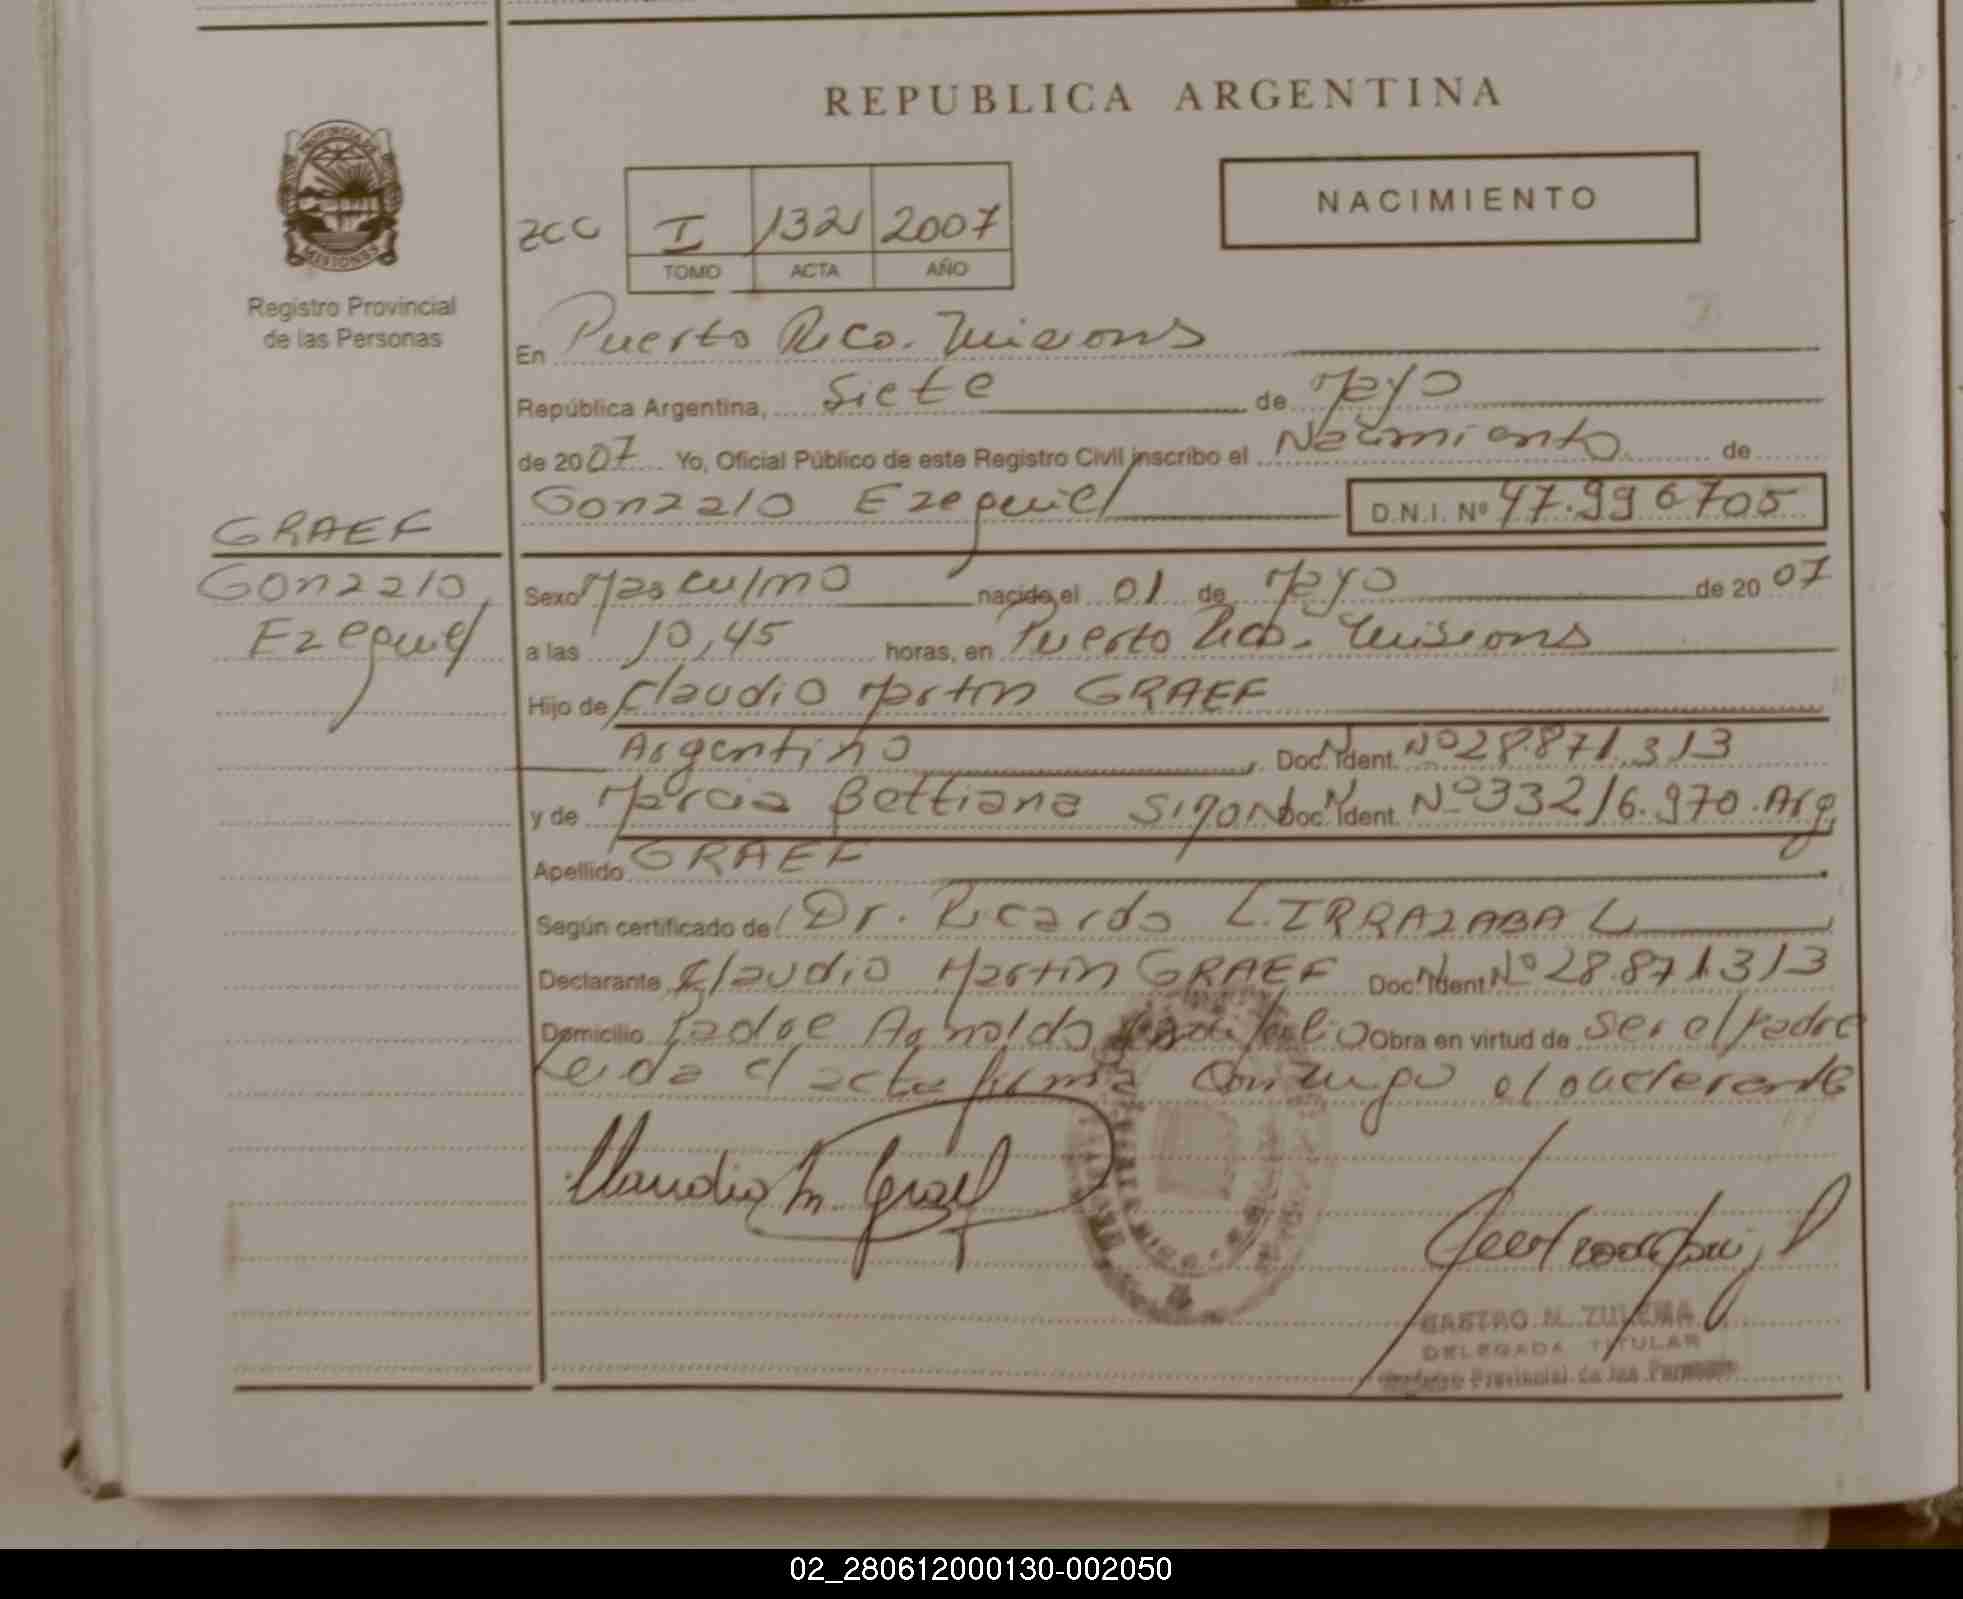 REPUBLICA ARGENTINA
PROVINCIA DE
MISIONES
Registro Provincial
de las Personas
NACIMIENTO
ZCC I 132 2007
TOMO ACTA AÑO
En Puerto Rico. Misiones
República Argentina, Siete de Mayo
de 2007 Yo, Oficial Público de este Registro Civil inscribo el Nacimiento de
Gonzalo Ezequiel D.N.I. Nº 47.996705
GRAEF
Gonzalo
Ezequiel
Sexo Masculino nacido el 01 de Mayo de 2007
a las 10,45 horas, en Puerto Rico. Misiones
Hijo de Claudio Martin GRAEF
Argentino Doc. Ident. Nº 28.871.313
y de Marcia Bettiana SIMON Doc. Ident. Nº 33216.970. Arg.
Apellido GRAEF
Según certificado de Dr. Ricardo L. IRRAZABAL
Declarante Claudio Martin GRAEF Doc. Ident Nº 28.871.313
Domicilio Padre Arnoldo Obra en virtud de ser el padre
Leida el acta firma conmigo el declarante
Claudio M. Graef
CASTRO N. ZULEMA
DELEGADA TITULAR
Registro Provincial de las Personas
02_280612000130-002050